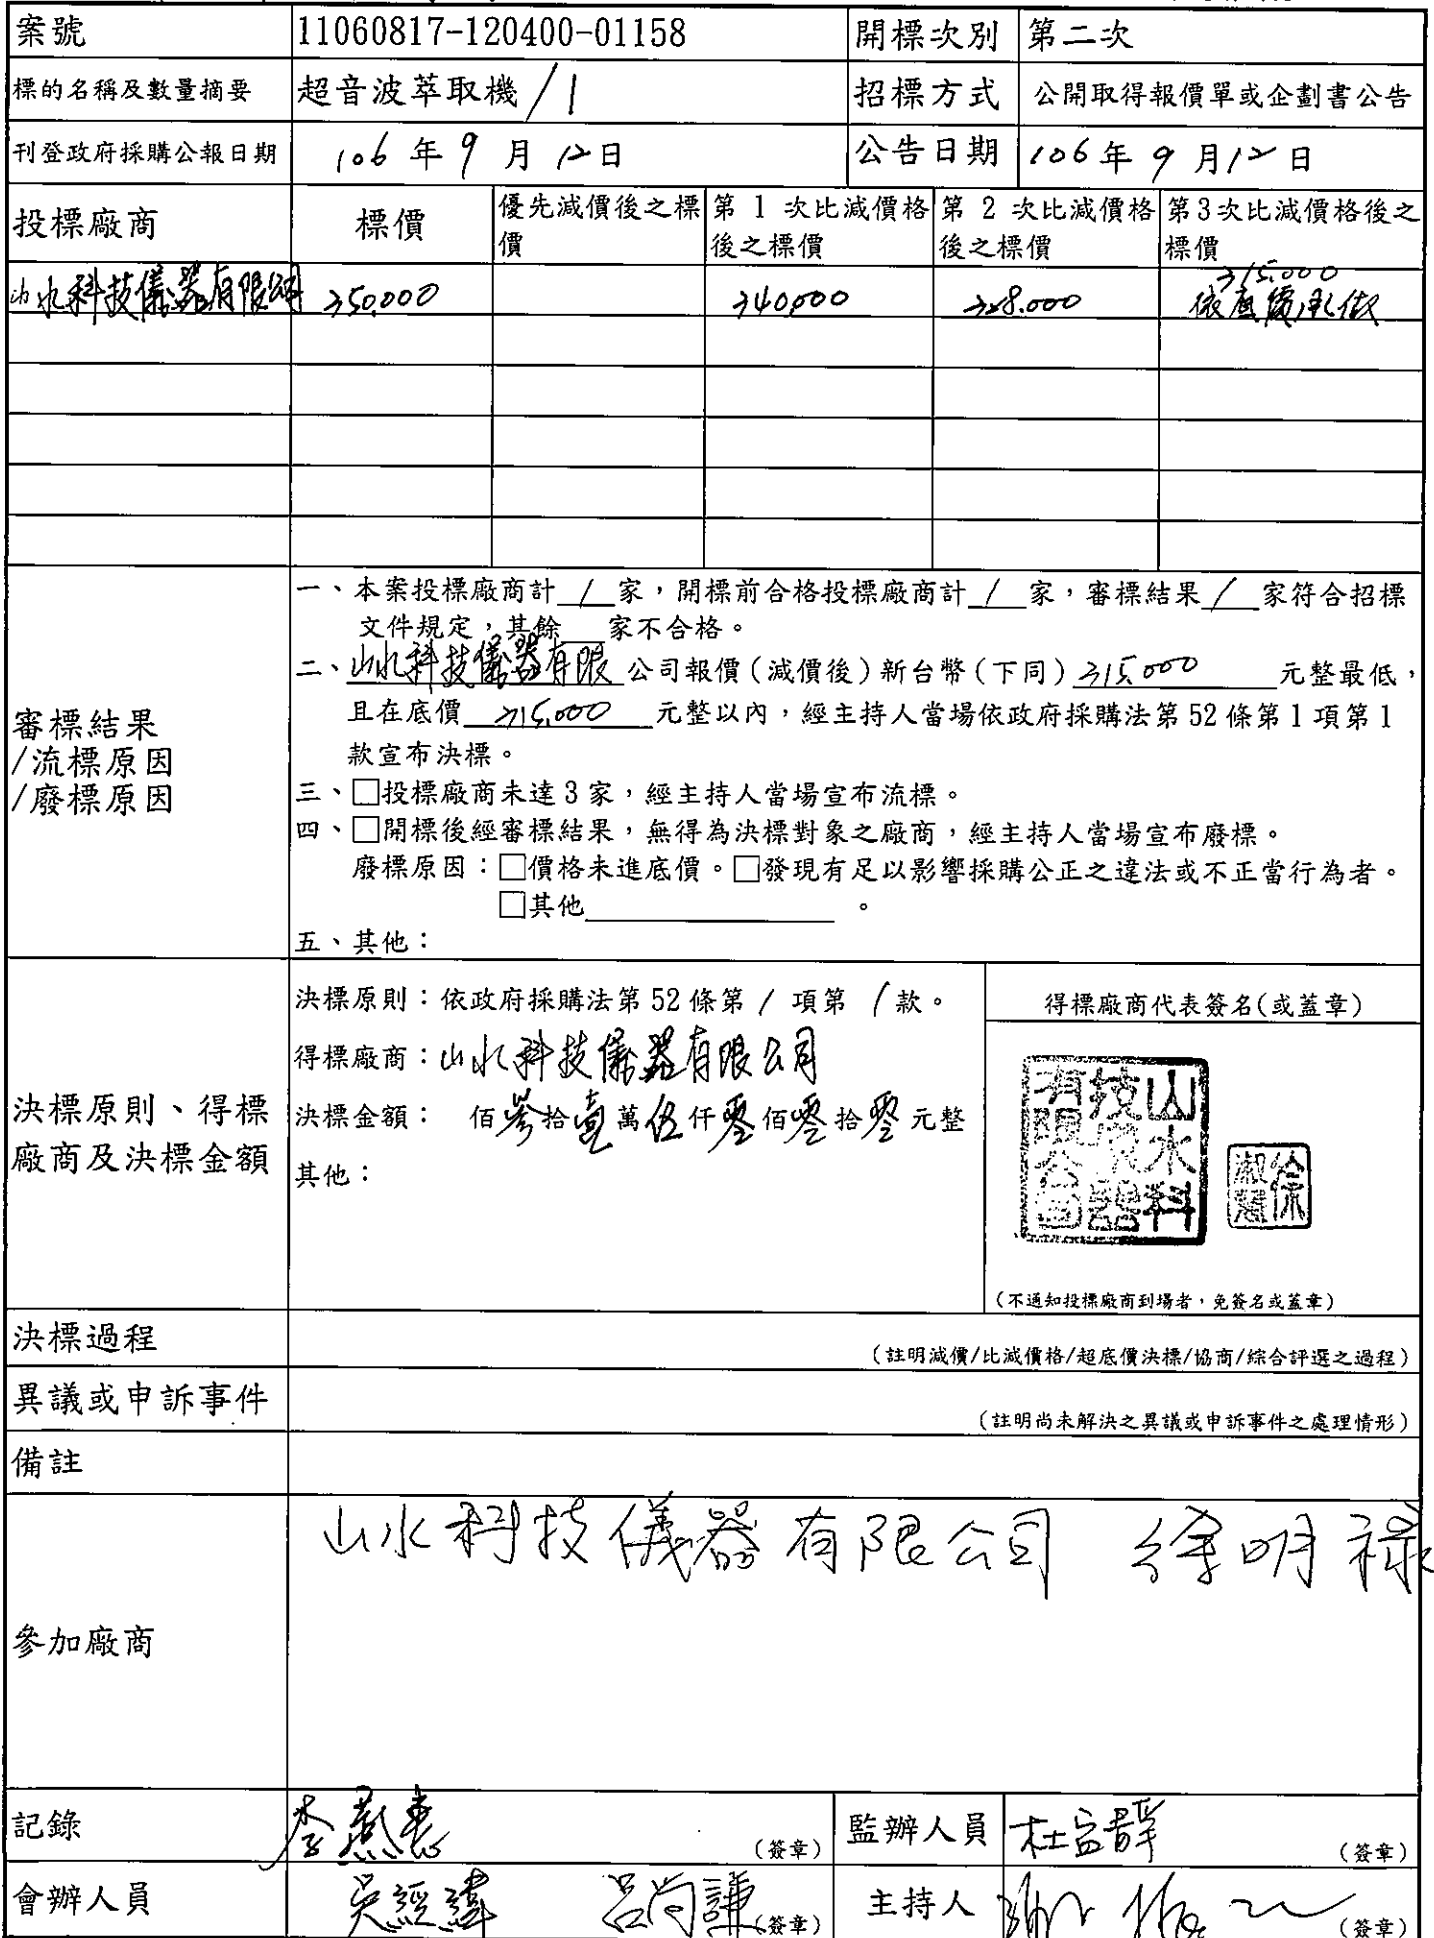 案號 11060817-120400-01158 開標次別 第二次
標的名稱及數量摘要 超音波萃取機/1 招標方式 公開取得報價單或企劃書公告
刊登政府採購公報日期 106年9月12日 公告日期 106年9月12日
投標廠商 標價 優先減價後之標價 第1次比減價格後之標價 第2次比減價格後之標價 第3次比減價格後之標價
315,000
山水科技儀器有限公司 350,000 340,000 328,000 依底價承做
審標結果
/流標原因
/廢標原因
一、本案投標廠商計 1 家,開標前合格投標廠商計 1 家,審標結果 1 家符合招標
文件規定,其餘 家不合格。
二、山水科技儀器有限公司報價(減價後)新台幣(下同)315,000元整最低,
且在底價 315,000 元整以內,經主持人當場依政府採購法第52條第1項第1
款宣布決標。
三、□投標廠商未達3家,經主持人當場宣布流標。
四、□開標後經審標結果,無得為決標對象之廠商,經主持人當場宣布廢標。
廢標原因:□價格未進底價。□發現有足以影響採購公正之違法或不正當行為者。
□其他 。
五、其他:
決標原則、得標
廠商及決標金額
決標原則:依政府採購法第52條第1項第1款。
得標廠商:山水科技儀器有限公司
決標金額: 佰參拾壹萬伍仟零佰零拾零元整
其他:
得標廠商代表簽名(或蓋章)
山水科技儀器有限公司
徐淑慧
(不通知投標廠商到場者,免簽名或蓋章)
決標過程 (註明減價/比減價格/超底價決標/協商/綜合評選之過程)
異議或申訴事件 (註明尚未解決之異議或申訴事件之處理情形)
備註
參加廠商 山水科技儀器有限公司 徐明祿
記錄 (簽章) 監辦人員 杜宜靜 (簽章)
會辦人員 吳經緯 呂尚謙 (簽章) 主持人 (簽章)